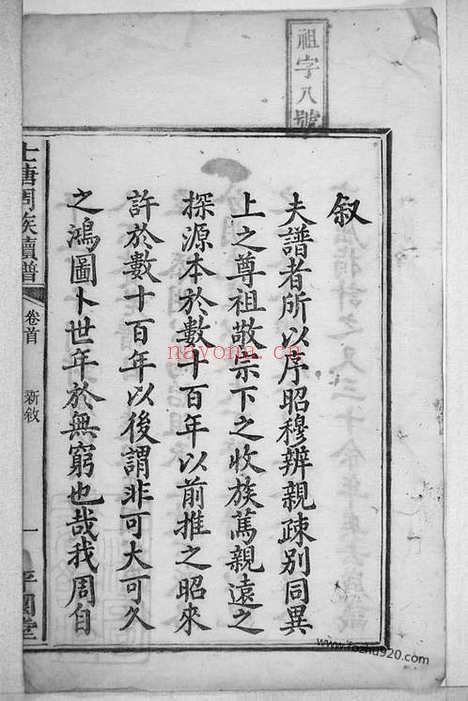 祖字八號
叙
夫譜者所以序昭穆辨親疎别同異
上之尊祖敬宗下之收族篤親遠之
探源本於數十百年以前推之昭來
許於數十百年以後謂非可大可久
之鴻圖卜世年於無窮也哉我周自
七塘周族續譜
卷首
新敘
一
nayona.cn
www.fozhu920.com